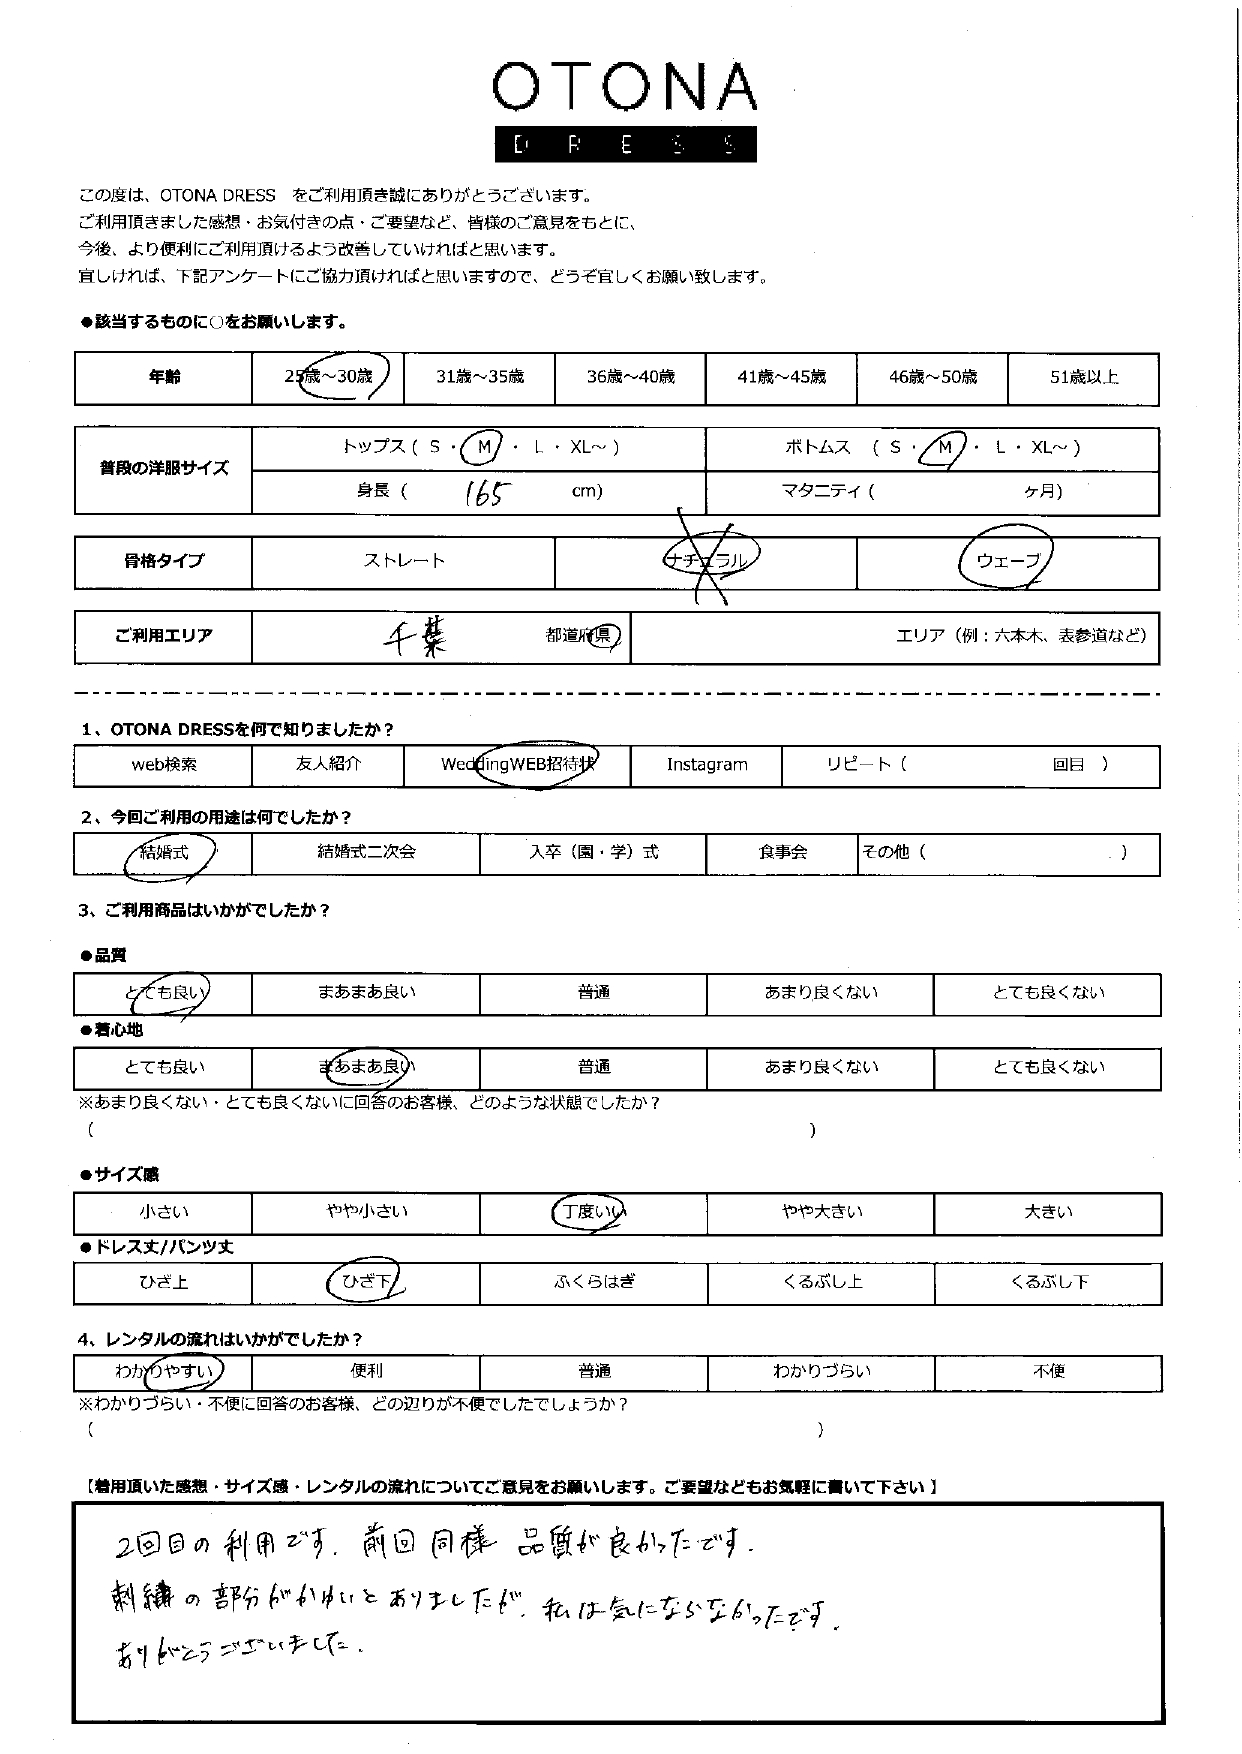 OTONA
DRESS
この度は、OTONA DRESS　をご利用頂き誠にありがとうございます。
ご利用頂きました感想・お気付きの点・ご要望など、皆様のご意見をもとに、
今後、より便利にご利用頂けるよう改善していければと思います。
宜しければ、下記アンケートにご協力頂ければと思いますので、どうぞ宜しくお願い致します。
●該当するものに○をお願いします。
年齢 25歳～30歳 31歳～35歳 36歳～40歳 41歳～45歳 46歳～50歳 51歳以上
普段の洋服サイズ トップス ( S ・ M ・ L ・ XL～ ) ボトムス ( S ・ M ・ L ・ XL～ )
身長 ( 165 cm) マタニティ ( ヶ月)
骨格タイプ ストレート ナチュラル ウェーブ
ご利用エリア 千葉 都道府県 エリア（例：六本木、表参道など）
1、OTONA DRESSを何で知りましたか？
web検索 友人紹介 WeddingWEB招待状 Instagram リピート ( 回目 )
2、今回ご利用の用途は何でしたか？
結婚式 結婚式二次会 入卒（園・学）式 食事会 その他 ( )
3、ご利用商品はいかがでしたか？
●品質
とても良い まあまあ良い 普通 あまり良くない とても良くない
●着心地
とても良い まあまあ良い 普通 あまり良くない とても良くない
※あまり良くない・とても良くないに回答のお客様、どのような状態でしたか？
( )
●サイズ感
小さい やや小さい 丁度いい やや大きい 大きい
●ドレス丈/パンツ丈
ひざ上 ひざ下 ふくらはぎ くるぶし上 くるぶし下
4、レンタルの流れはいかがでしたか？
わかりやすい 便利 普通 わかりづらい 不便
※わかりづらい・不便に回答のお客様、どの辺りが不便でしたでしょうか？
( )
【着用頂いた感想・サイズ感・レンタルの流れについてご意見をお願いします。ご要望などもお気軽に書いて下さい】
2回目の利用です. 前回同様 品質が良かったです.
刺繍の部分がかゆいとありましたが、私は気にならなかったです.
ありがとうございました.